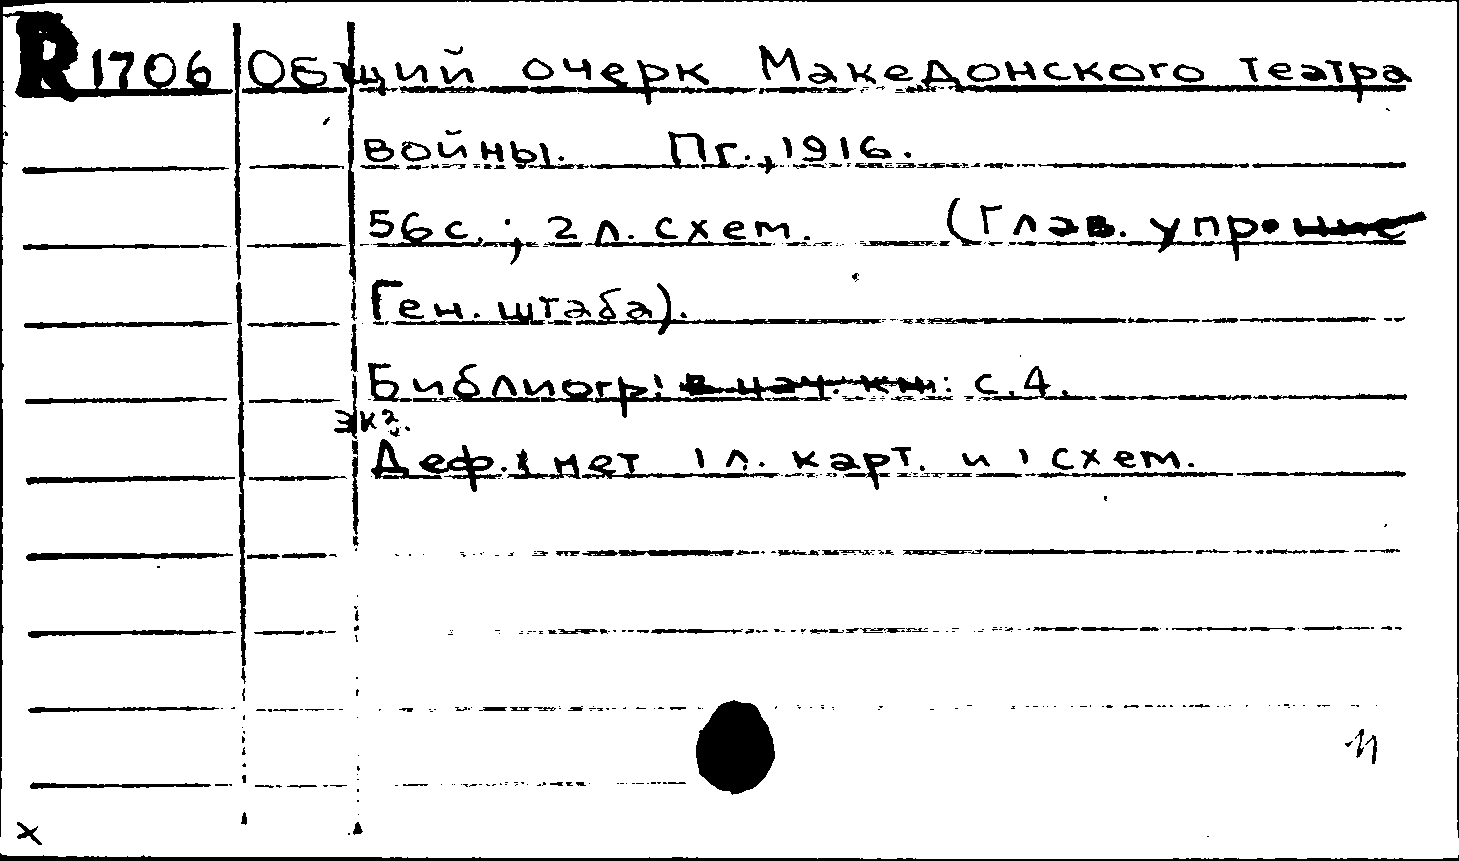 R1706 Общий очерк Македонского театра
войны. Пг., 1916.
56 с.; 2 л. схем. (Глав. упр.
Ген. штаба).
Библиогр.: с. 4.
экз.
Деф.: нет 1 л. карт. и 1 схем.